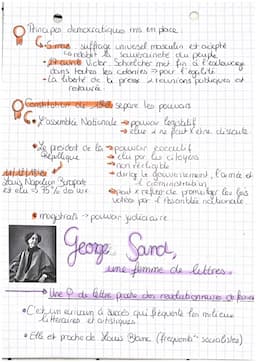 Principes démocratiques mis en place
6 mars : suffrage universel masculin est adopté
établit la souveraineté du peuple
Victor Schoelcher met fin à l'esclavage
dans toutes les colonies → pour l'égalité
La liberté de la presse & réunions publiques est
restaurée
Constitution de sépare les pouvoirs
L'assemblée Nationale → pouvoir législatif
→ élue & ne peut être dissoute
Le président de la → pouvoir exécutif
République → élu par les citoyens
→ non rééligible
→ dirige le gouvernement, l'armée et
l'administration
Louis Napoléon Bonaparte
est élu à 75% des voix
→ peut refuser de promulguer les lois
votées par l'Assemblée nationale
magistrats → pouvoir judiciaire
George Sand,
une femme de lettres
→ Une f° de lettre proche des révolutionnaires de février
C'est un écrivain à succès qui fréquente les milieux
littéraires et artistiques
Elle est proche de Louis Blanc (fréquente socialistes)